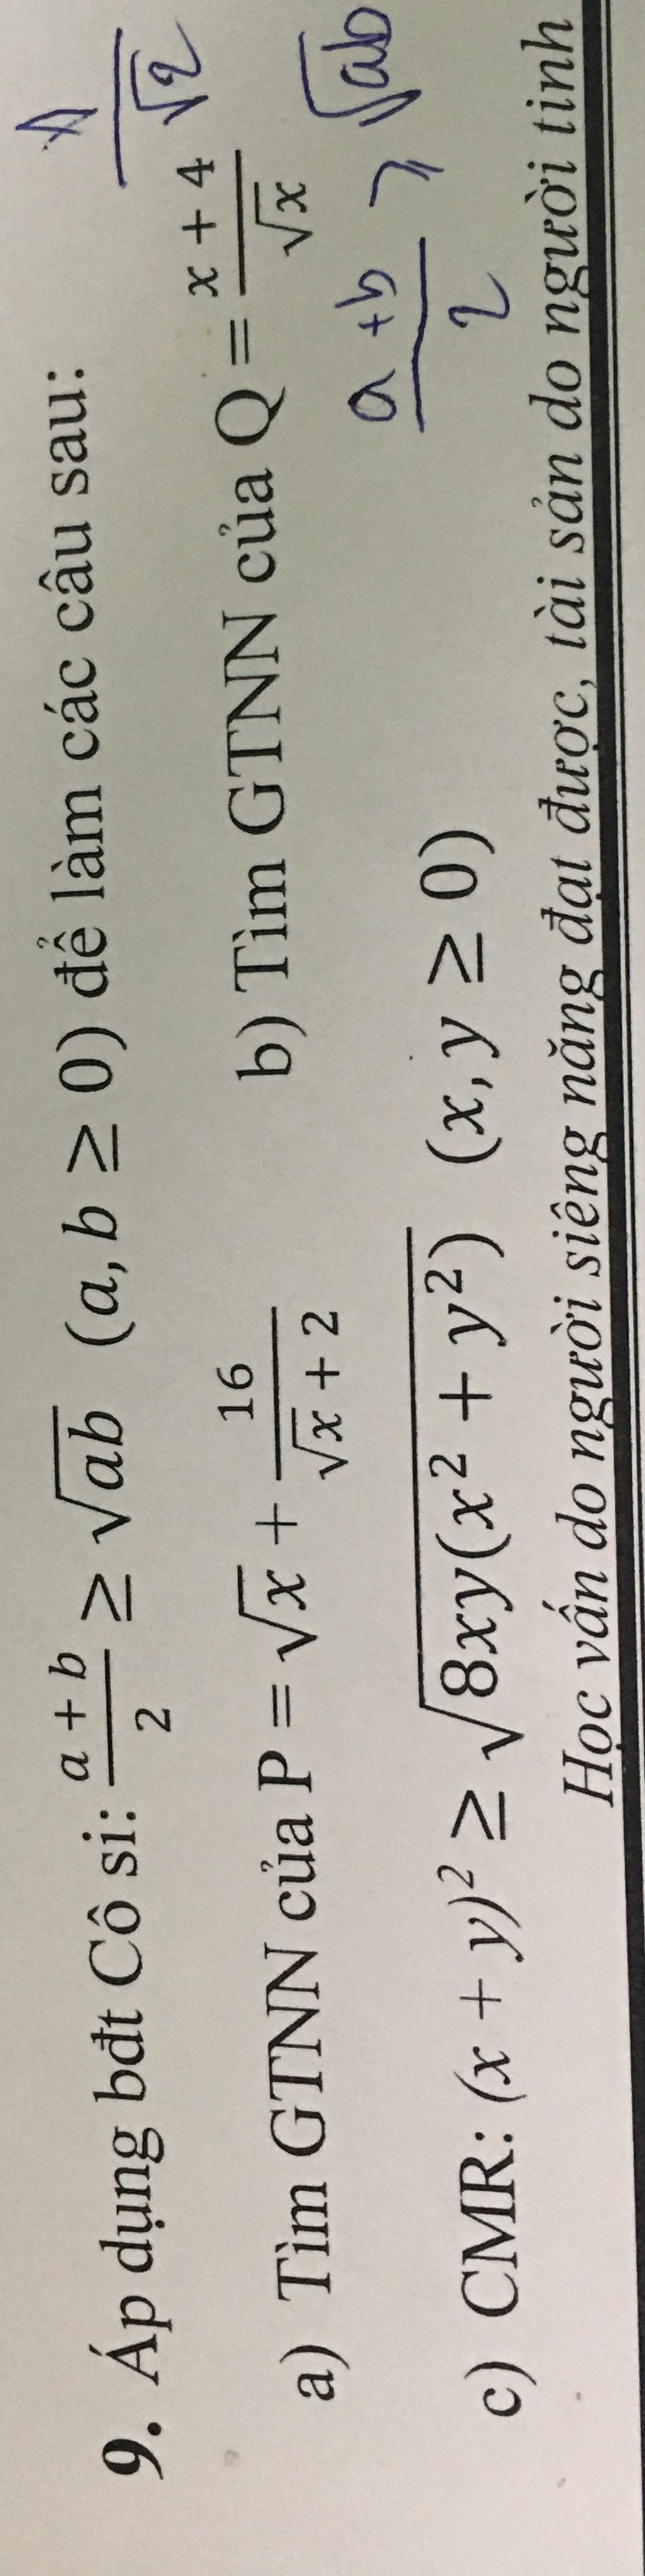 9. Áp dụng bđt Cô si: \frac{a + b}{2} ≥ \sqrt{ab} (a, b ≥ 0) để làm các câu sau:
a) Tìm GTNN của P = \sqrt{x} + \frac{16}{\sqrt{x} + 2} b) Tìm GTNN của Q = \frac{x + 4}{\sqrt{x}}
\frac{a + b}{2} ≥ \sqrt{ab}
c) CMR: (x + y)² ≥ \sqrt{8xy(x² + y²)} (x, y ≥ 0)
Học vấn do người siêng năng đạt được, tài sản do người tinh